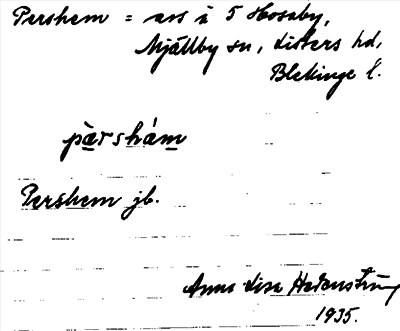 Pershem = avs å 5 Hosaby,
Mjällby sn, Listers hd,
Blekinge l.
pàrshám
Pershem jb.
Anna Lisa Hedenström
1935.